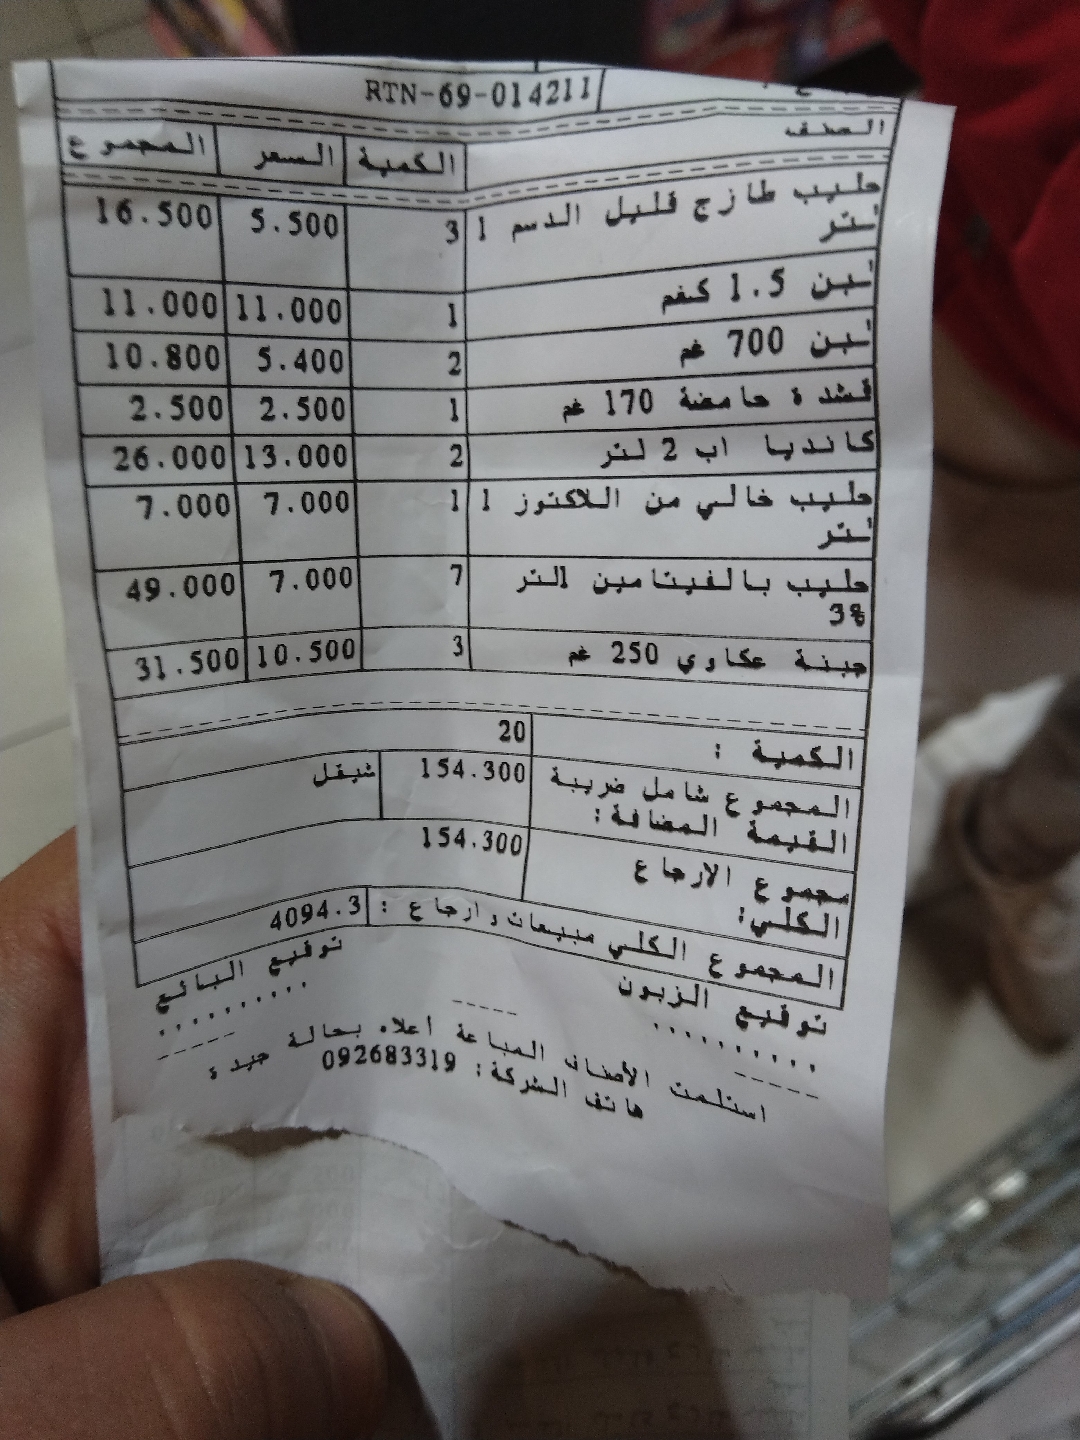 RTN-69-014211
الصنف الكمية السعر المجموع
حليب طازج قليل الدسم 1 3 5.500 16.500
لتر
لبن 1.5 كغم 1 11.000 11.000
لبن 700 غم 2 5.400 10.800
قشدة حامضة 170 غم 1 2.500 2.500
كانديا اب 2 لتر 2 13.000 26.000
حليب خالي من اللاكتوز 1 1 7.000 7.000
لتر
حليب بالفيتامين 1لتر 7 7.000 49.000
3%
جبنة عكاوي 250 غم 3 10.500 31.500
الكمية : 20
المجموع شامل ضريبة 154.300 شيقل
القيمة المضافة:
مجموع الارجاع 154.300
الكلي:
المجموع الكلي مبيعات وارجاع : 4094.3
توقيع الزبون توقيع البائع
.......... ..........
استلمت الأصناف المباعة أعلاه بحالة جيدة
هاتف الشركة: 092683319